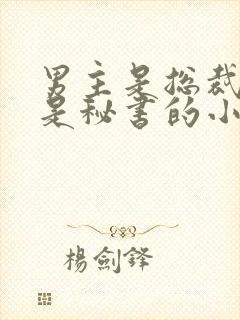 男主是总裁
是秘书的小
楊劍鋒